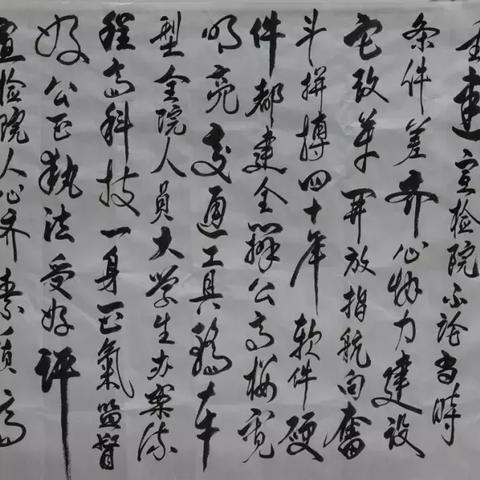 重建宣检院不论当時
条件差齐心协力建设
它改革开放指航向奮
斗拼搏四十年软件硬
件都建全辦公高楼宽
明亮交通工具车
型全院人員大学生办案流
程高科技一身正氣监督
好公正執法受好评
宣检院人心齐素质高